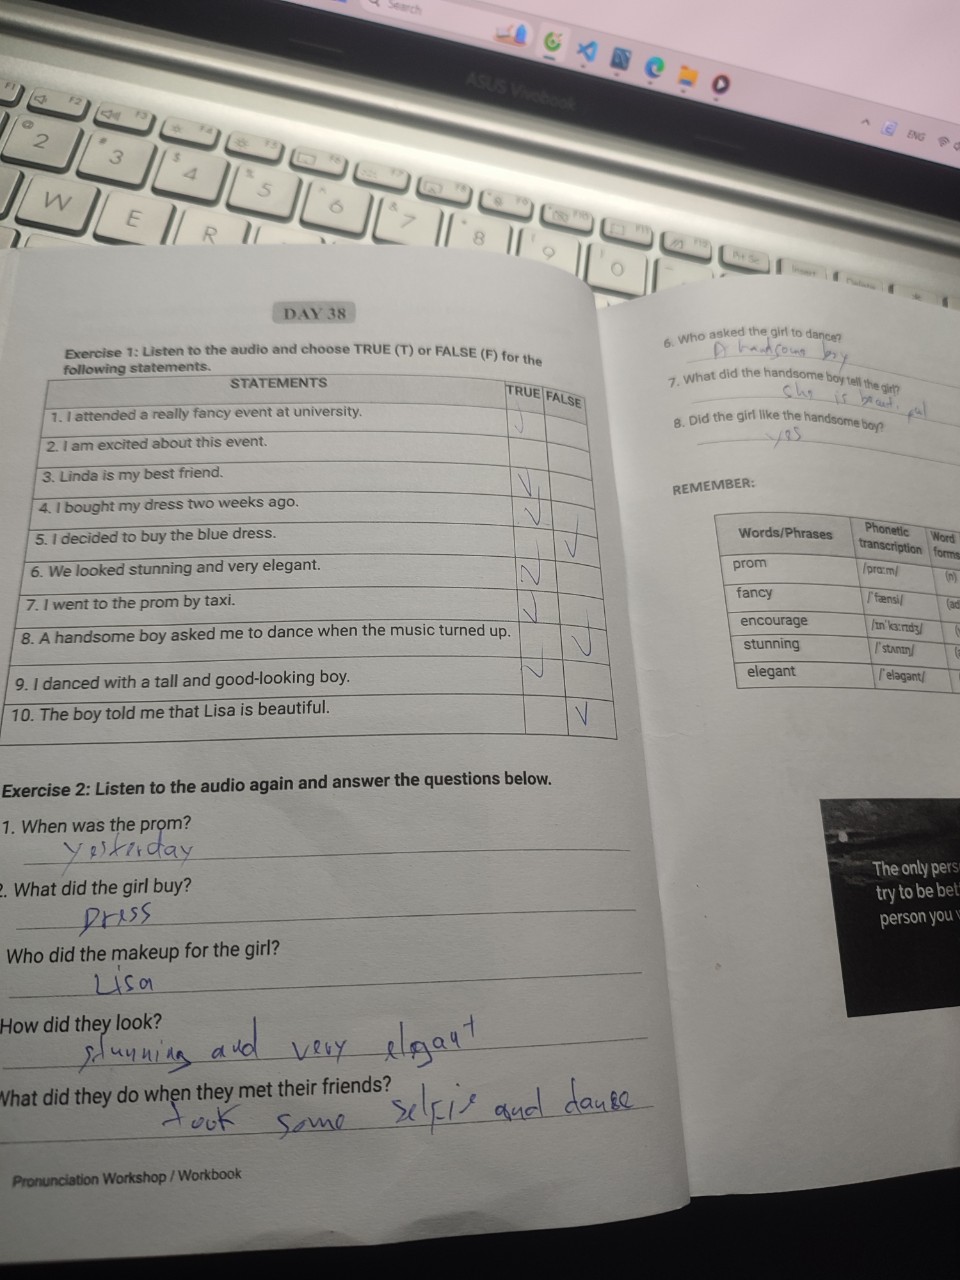 Search
ASUS Vivobook
ENG
F1 F2 F3 F4 F5 F6 F7 F8 F9 F10 F11 F12 Prt Sc Insert Delete
@ 2 # 3 $ 4 % 5 ^ 6 & 7 * 8 ( 9 ) 0
W E R
DAY 38
Exercise 1: Listen to the audio and choose TRUE (T) or FALSE (F) for the
following statements.
STATEMENTS TRUE FALSE
1. I attended a really fancy event at university.
2. I am excited about this event.
3. Linda is my best friend.
4. I bought my dress two weeks ago.
5. I decided to buy the blue dress.
6. We looked stunning and very elegant.
7. I went to the prom by taxi.
8. A handsome boy asked me to dance when the music turned up.
9. I danced with a tall and good-looking boy.
10. The boy told me that Lisa is beautiful.
Exercise 2: Listen to the audio again and answer the questions below.
1. When was the prom?
yesterday
2. What did the girl buy?
Dress
Who did the makeup for the girl?
Lisa
How did they look?
stunning and very elegant
What did they do when they met their friends?
took some selfie and danse
Pronunciation Workshop / Workbook
6. Who asked the girl to dance?
A handsome boy
7. What did the handsome boy tell the girl?
she is beautiful
8. Did the girl like the handsome boy?
yes
REMEMBER:
Words/Phrases Phonetic transcription Word forms
prom /prɑːm/ (n)
fancy /ˈfænsi/ (ad
encourage /ɪnˈkɜːrɪdʒ/
stunning /ˈstʌnɪŋ/
elegant /ˈelɪɡənt/
The only pers
try to be bet
person you